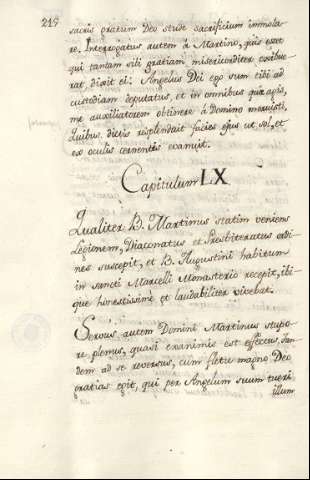 219
sacris gratum Deo stude sacrificium immola-
re. Interrogatus autem à Martino, quis esset
qui tantam sibi gratiam misericorditer exibue-
rat, dixit ei: Angelus Dei ego sum tibi ad
custodiam deputatus, et in omnibus quæ agis,
me auxiliatorem obtinere à Domino meruisti.
Quibus dictis resplenduit facies ejus ut sol, et
ex oculis cernentis evanuit.
Capitulum LX
Qualiter B. Martinus statim veniens
Legionem, Diaconatus et Presbiteratus ordi-
nes suscepit, et B. Augustini habitum
in sancti Marcelli Monasterio recepit, ibi-
que honestissimè et laudabiliter vivebat.
Servus autem Domini Martinus stupo-
re plenus, quasi exanimis est effectus, tan-
dem ad se reversus, cum fletu magno Deo
gratias egit, qui per Angelum suum tueri
illum